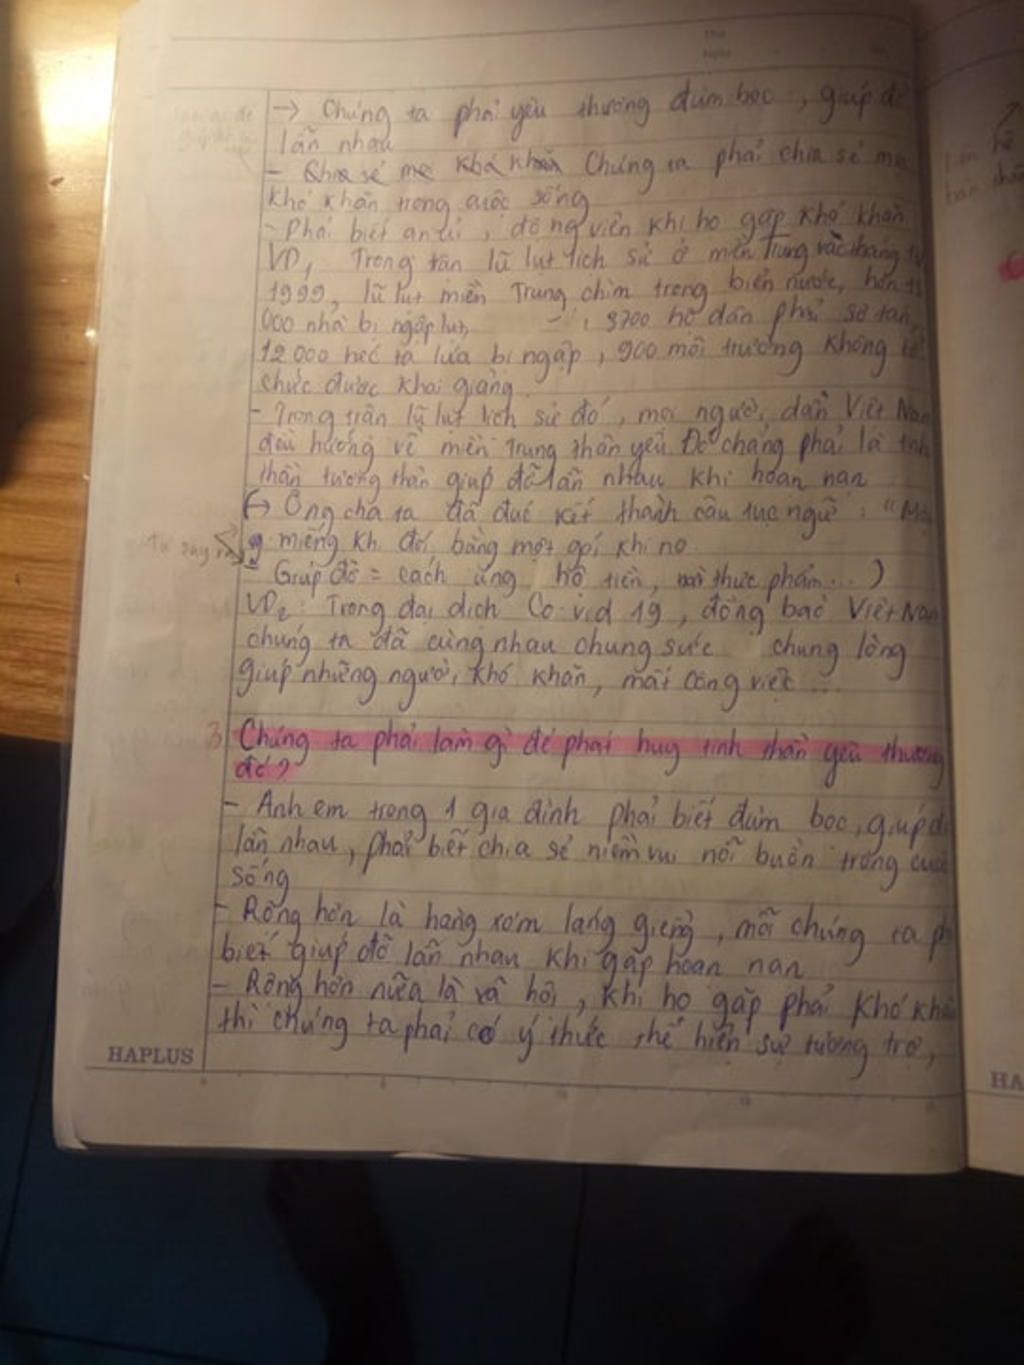 → Chúng ta phải yêu thương đùm bọc, giúp đỡ
lẫn nhau
- Chia sẻ mọi khó khăn Chúng ta phải chia sẻ mọi
khó khăn trong cuộc sống
- Phải biết an ủi, động viên khi họ gặp khó khăn
VD1 Trong trận lũ lụt lịch sử ở miền Trung vào tháng
1999, lũ lụt miền Trung chìm trong biển nước, hơn
000 nhà bị ngập lụt, 3700 hộ dân phải sơ tán,
12000 héc ta lúa bị ngập, 900 môi trường không tổ
chức được khai giảng.
- Trong trận lũ lụt lịch sử đó, mọi người dân Việt Nam
đều hướng về miền Trung thân yêu Đó chẳng phải là tinh
thần tương thân giúp đỡ lẫn nhau khi hoạn nạn
(→ Ông cha ta đã đúc kết thành câu tục ngữ : "Một
miếng khi đói bằng một gói khi no
- Giúp đỡ = cách ủng hộ tiền, mì thực phẩm...)
VD2: Trong đại dịch Co-vid 19, đồng bào Việt Nam
chúng ta đã cùng nhau chung sức chung lòng
giúp những người khó khăn, mất công việc ...
3 Chúng ta phải làm gì để phát huy tinh thần yêu thương
đó?
- Anh em trong 1 gia đình phải biết đùm bọc, giúp đỡ
lẫn nhau, phải biết chia sẻ niềm vui nỗi buồn trong cuộc
sống
- Rộng hơn là hàng xóm láng giềng, mỗi chúng ta phải
biết giúp đỡ lẫn nhau khi gặp hoạn nạn
- Rộng hơn nữa là xã hội, khi họ gặp phải khó khăn
thì chúng ta phải có ý thức thể hiện sự tương trợ,
HAPLUS
HA